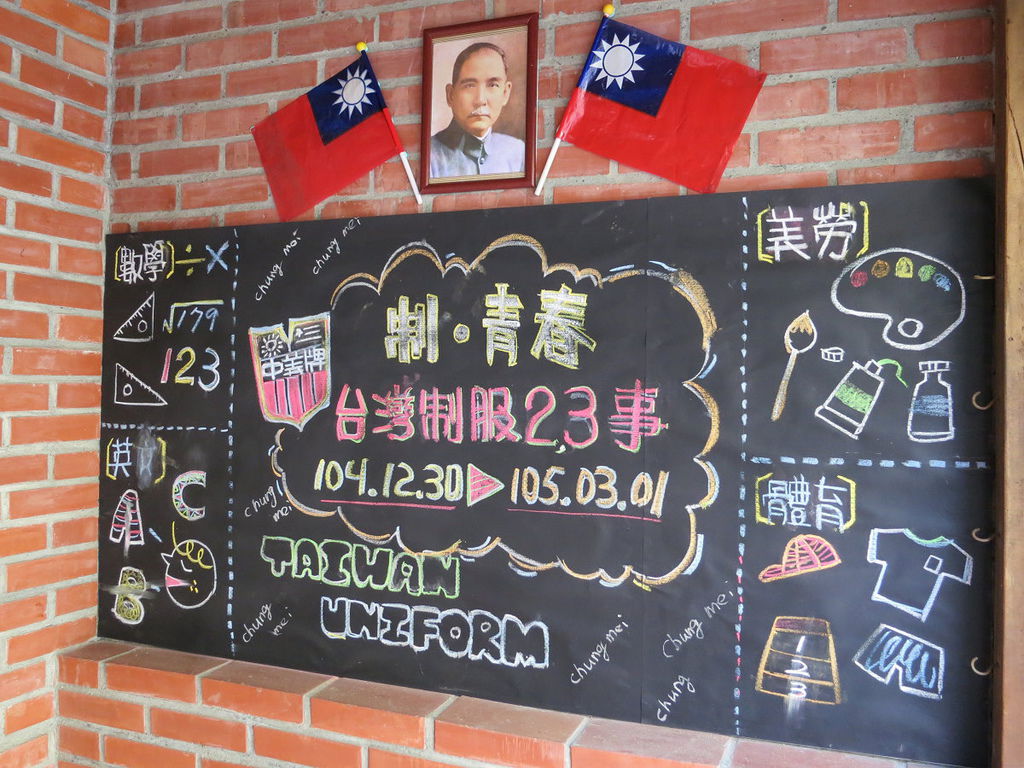 [數學] ÷ ×
√179
123
[英文]
A
B
C
chung mei
chung mei
制·青春
台灣制服23事
104.12.30▶105.03.01
中美牌
chung mei
TAIWAN
UNIFORM
chung mei
chung mei
chung mei
chung
[美勞]
[體育]
1
2
3